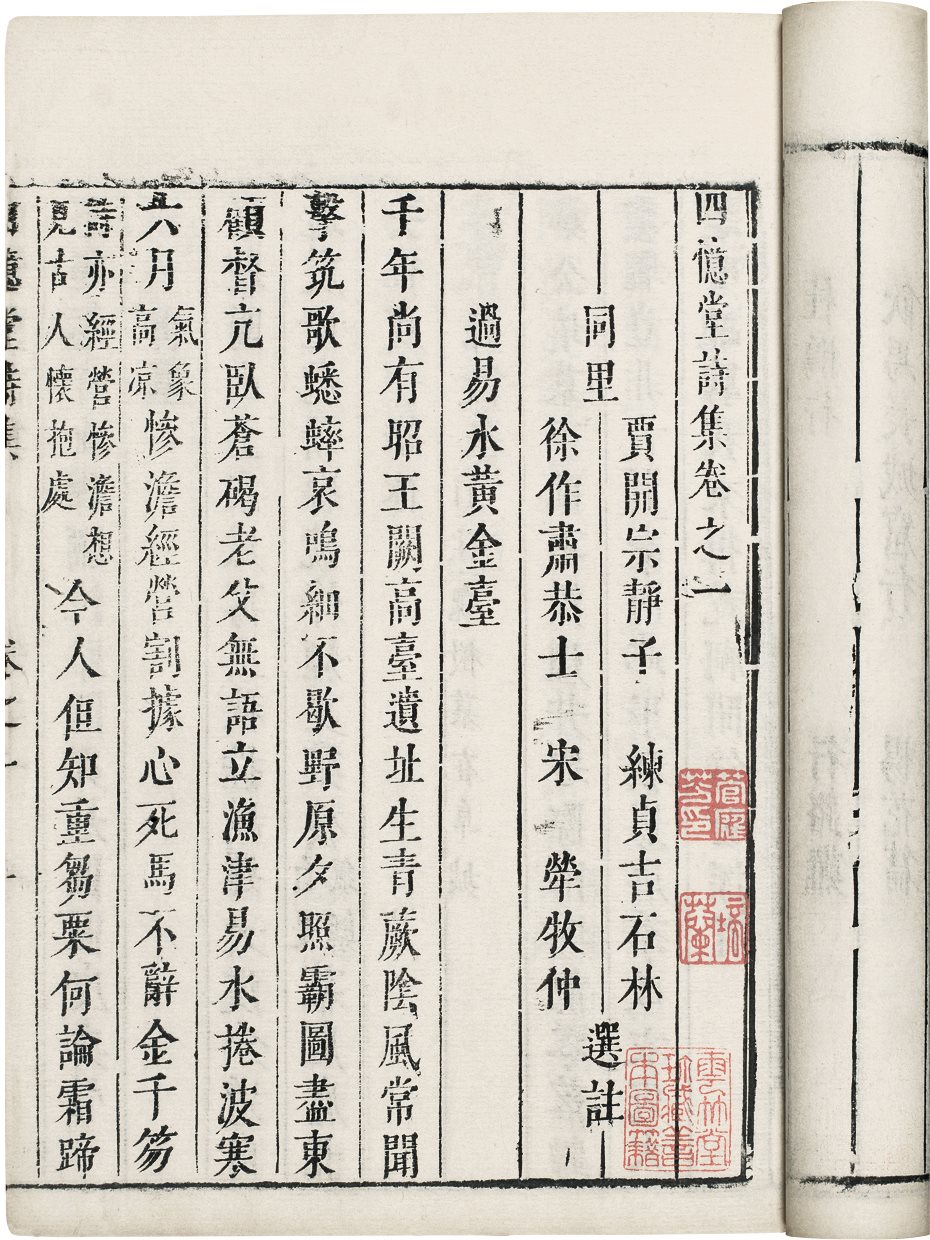 四憶堂詩集卷之一
賈開宗靜子 練貞吉石林
同里 選註
徐作肅恭士 宋 犖牧仲
過易水黃金臺
千年尚有昭王闕高臺遺址生青蕨陰風常聞
擊筑歌蟋蟀哀鳴細不歇野原夕照霸圖盡東
顧督亢臥蒼碣老父無語立漁津易水捲波寒
六月氣象高凉慘澹經營割據心死馬不辭金千笏
詩亦經營慘澹想見古人懷抱處今人但知重芻粟何論霜蹄
四憶堂詩集 卷之一 一
雲竹堂珍藏善本圖籍